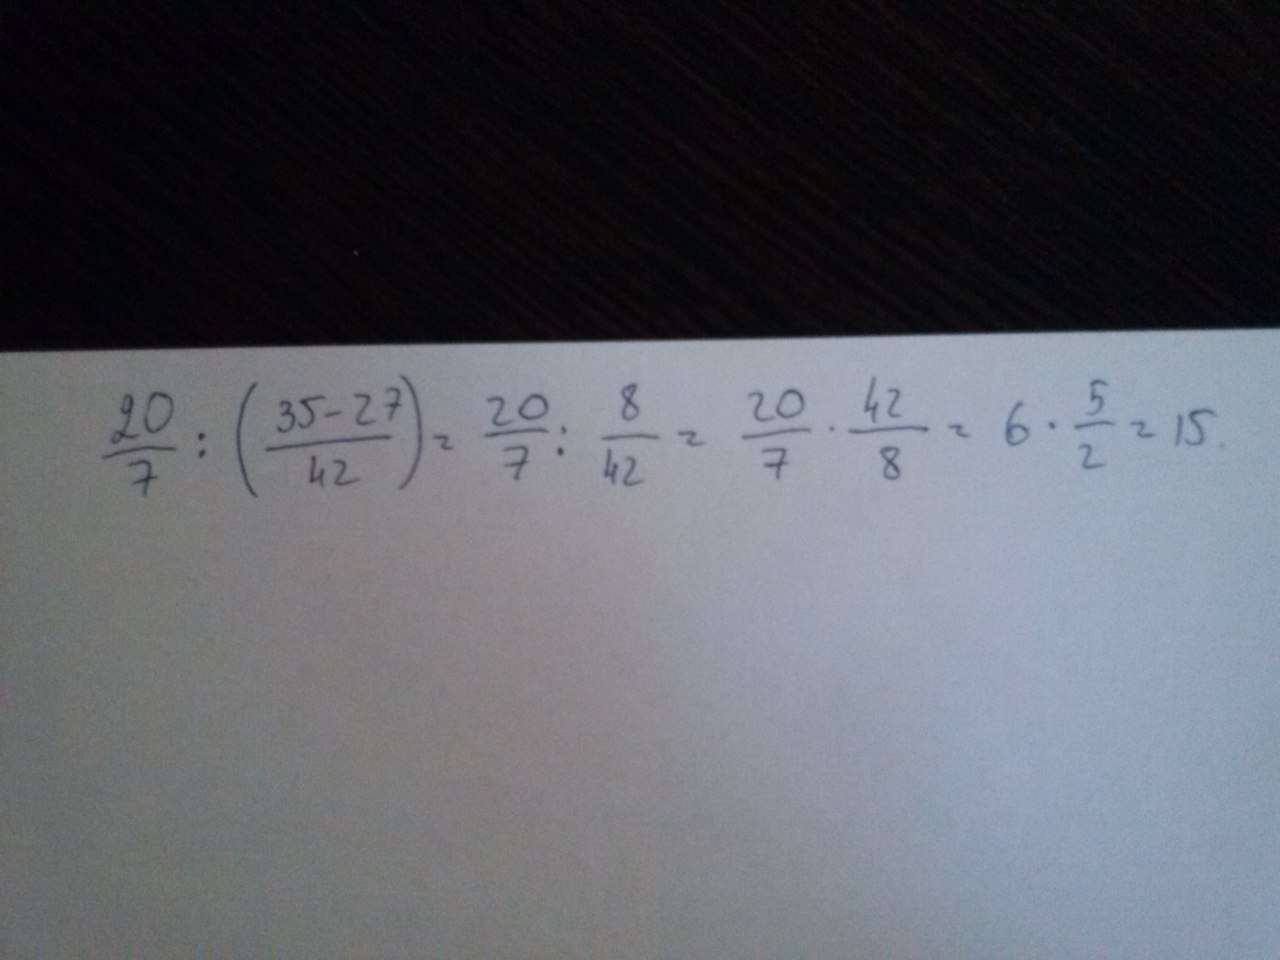 20/7 : ((35-27)/42) = 20/7 : 8/42 = 20/7 · 42/8 = 6 · 5/2 = 15.